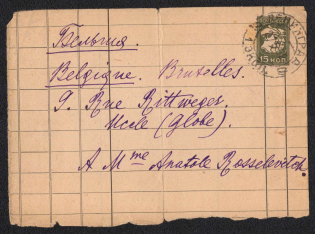 Бельгия.
Belgique. Bruxelles.
9. Rue Rittweger.
Uccle (Globe).
A Mme Anatole Rosselevitch.
15 КОП